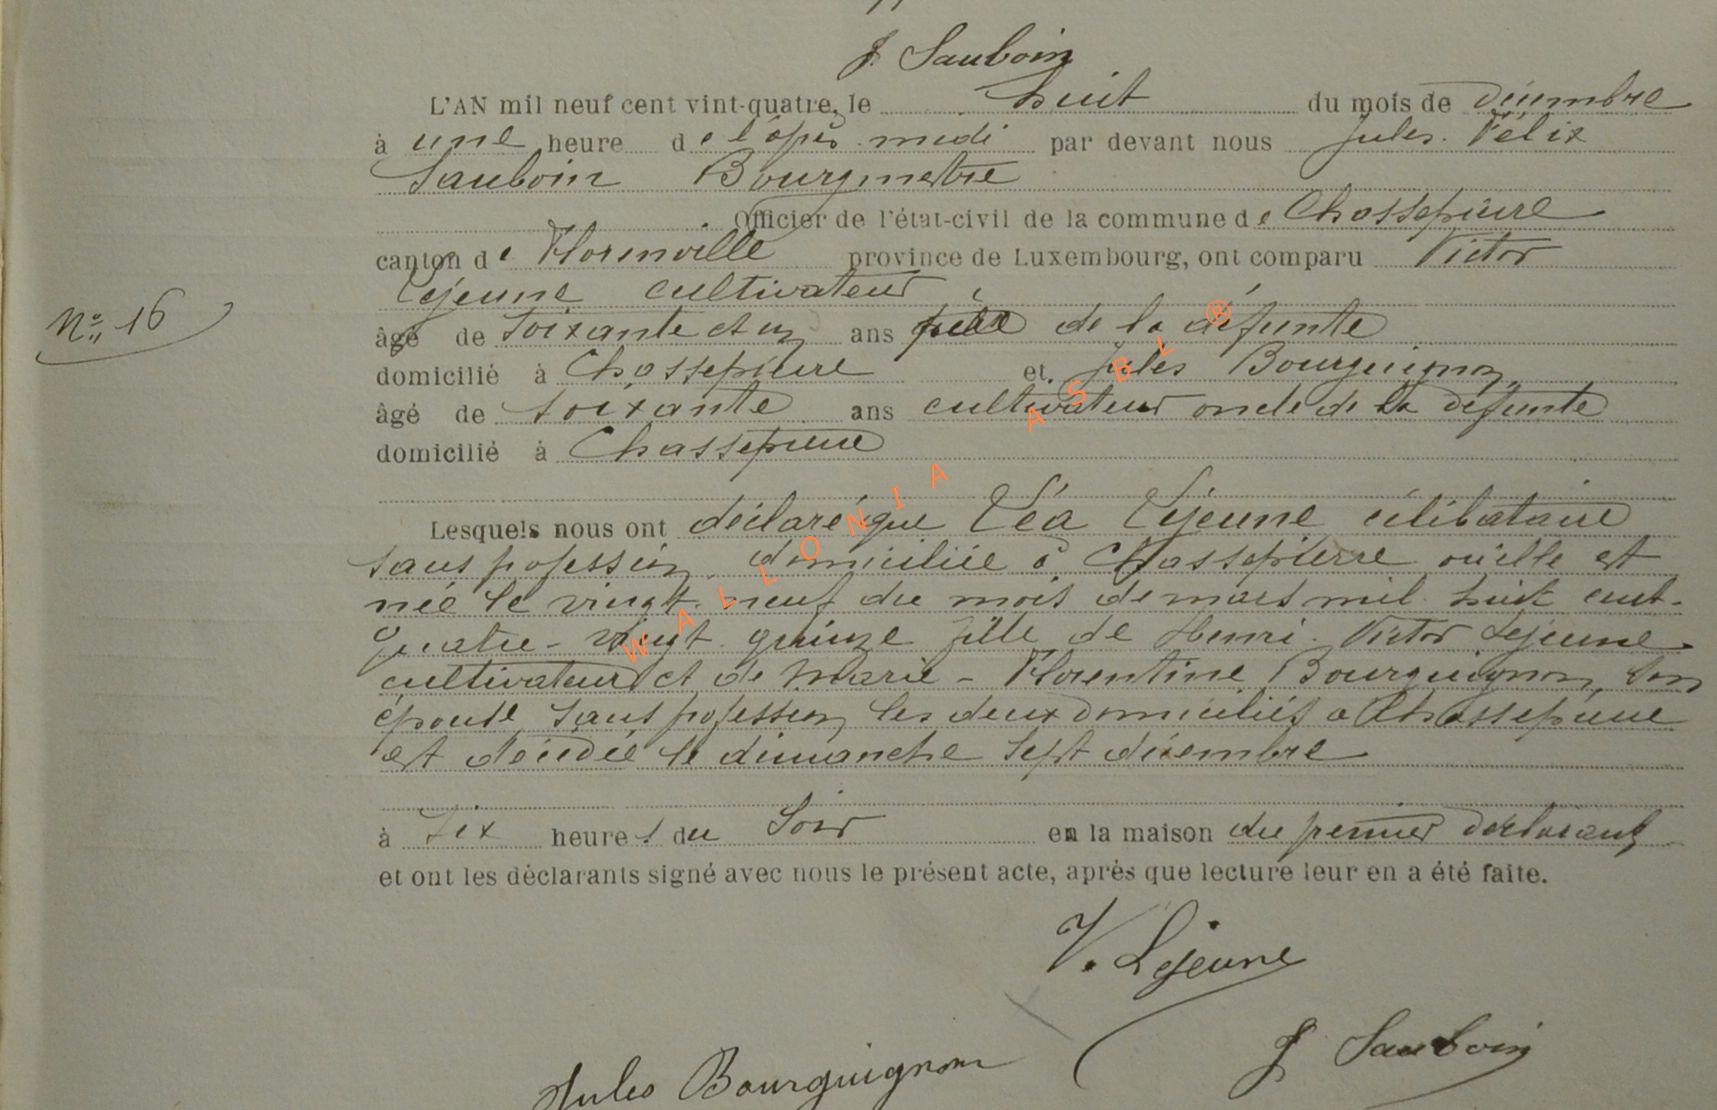 J. Sauboin
L'AN mil neuf cent vint-quatre, le huit du mois de Décembre
à une heure de l'après midi par devant nous Jules Félix
Sauboin Bourgmestre
Officier de l'état-civil de la commune de Chassepierre
canton de Florenville province de Luxembourg, ont comparu Victor
Lejeune cultivateur
âgé de soixante et un ans père de la défunte
N° 16
domicilié à Chassepierre et Jules Bourguignon
âgé de soixante ans cultivateur oncle de la défunte
domicilié à Chassepierre
Lesquels nous ont déclaré que Léa Lejeune célibataire
sans profession domiciliée à Chassepierre où elle est
née le vingt-neuf du mois de mars mil huit cent-
quatre-vingt quinze fille de Henri Victor Lejeune
cultivateur et de Marie-Florentine Bourguignon, son
épouse sans profession les deux domiciliés à Chassepierre
est décédée le dimanche sept décembre
à six heures du soir en la maison du premier déclarant
et ont les déclarants signé avec nous le présent acte, après que lecture leur en a été faite.
V. Lejeune
J Sauboin
Jules Bourguignon
WALLONIA ASBL ®